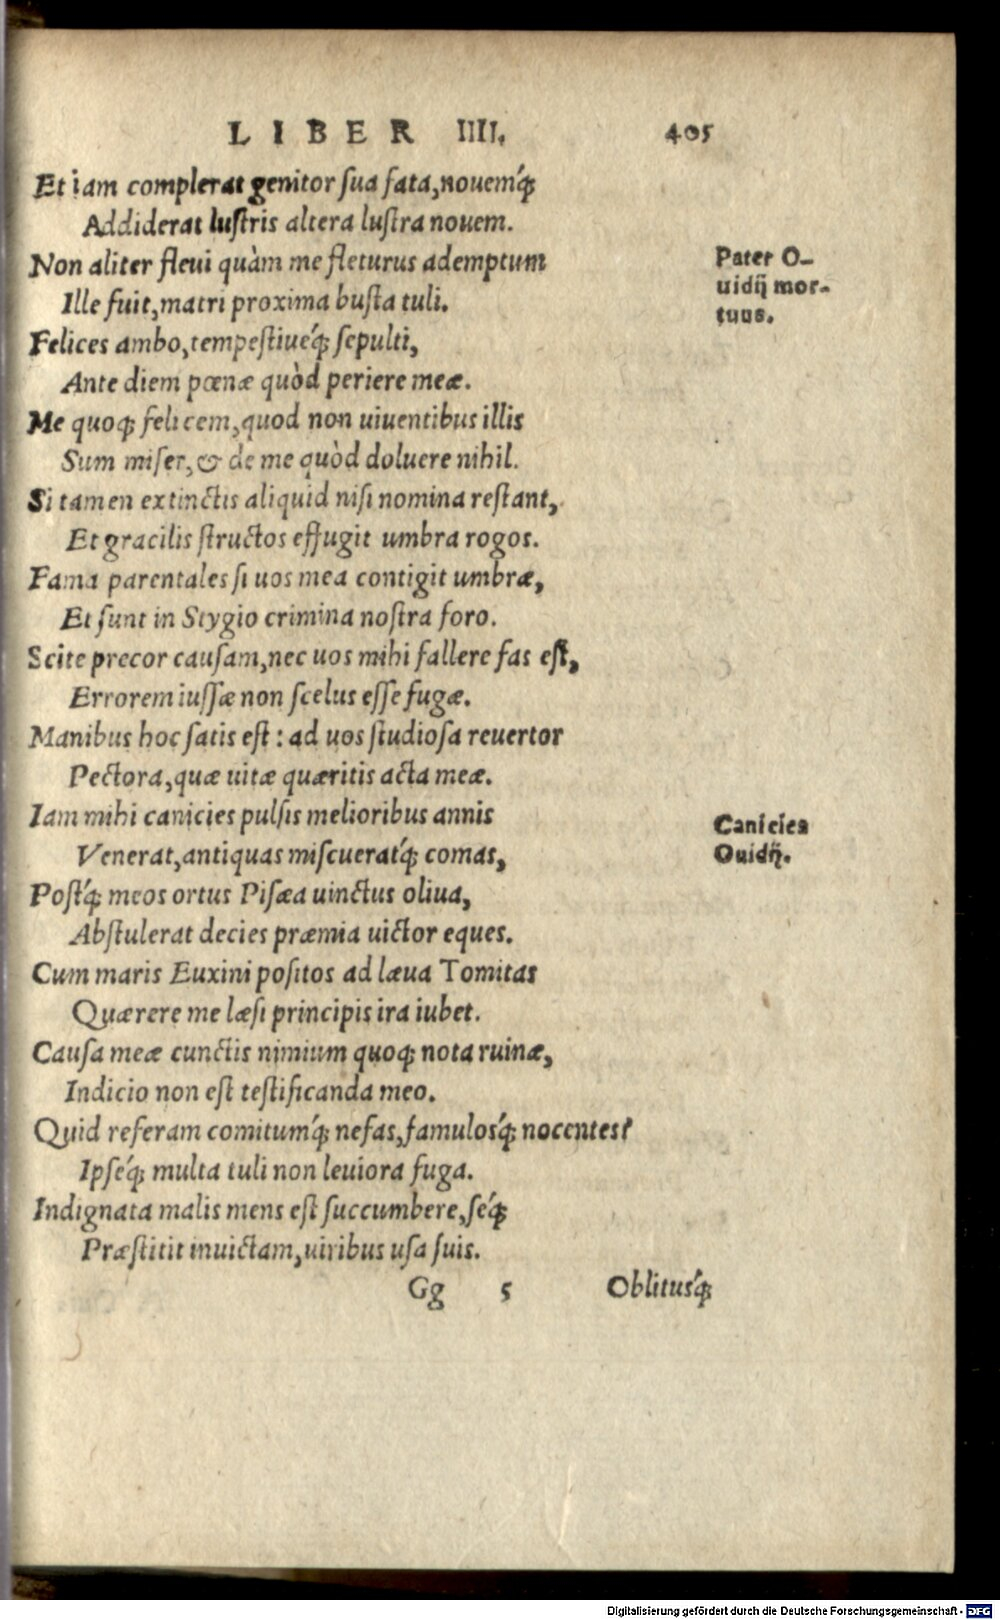 LIBER IIII. 405
Et iam complerat genitor sua fata, nouemq́;
Addiderat lustris altera lustra nouem.
Non aliter fleui quàm me fleturus ademptum
Ille fuit, matri proxima busta tuli.
Pater O-
uidij mor-
tuus.
Felices ambo, tempestiueq́; sepulti,
Ante diem pœnæ quòd periere meæ.
Me quoq; felicem, quod non uiuentibus illis
Sum miser, & de me quòd doluere nihil.
Si tamen extinctis aliquid nisi nomina restant,
Et gracilis structos effugit umbra rogos.
Fama parentales si uos mea contigit umbræ,
Et sunt in Stygio crimina nostra foro.
Scite precor causam, nec uos mihi fallere fas est,
Errorem iussæ non scelus esse fugæ.
Manibus hoc satis est: ad uos studiosa reuertor
Pectora, quæ uitæ quæritis acta meæ.
Iam mihi canicies pulsis melioribus annis
Venerat, antiquas miscueratq́; comas,
Canicies
Ouidij.
Postq́; meos ortus Pisæa uinctus oliua,
Abstulerat decies præmia uictor eques.
Cum maris Euxini positos ad læua Tomitas
Quærere me læsi principis ira iubet.
Causa meæ cunctis nimium quoq; nota ruinæ,
Indicio non est testificanda meo.
Quid referam comitumq́; nefas, famulosq́; nocentes?
Ipseq́; multa tuli non leuiora fuga.
Indignata malis mens est succumbere, seq́;
Præstitit inuictam, uiribus usa suis.
Gg 5 Oblitusq́;
Digitalisierung gefördert durch die Deutsche Forschungsgemeinschaft - DFG